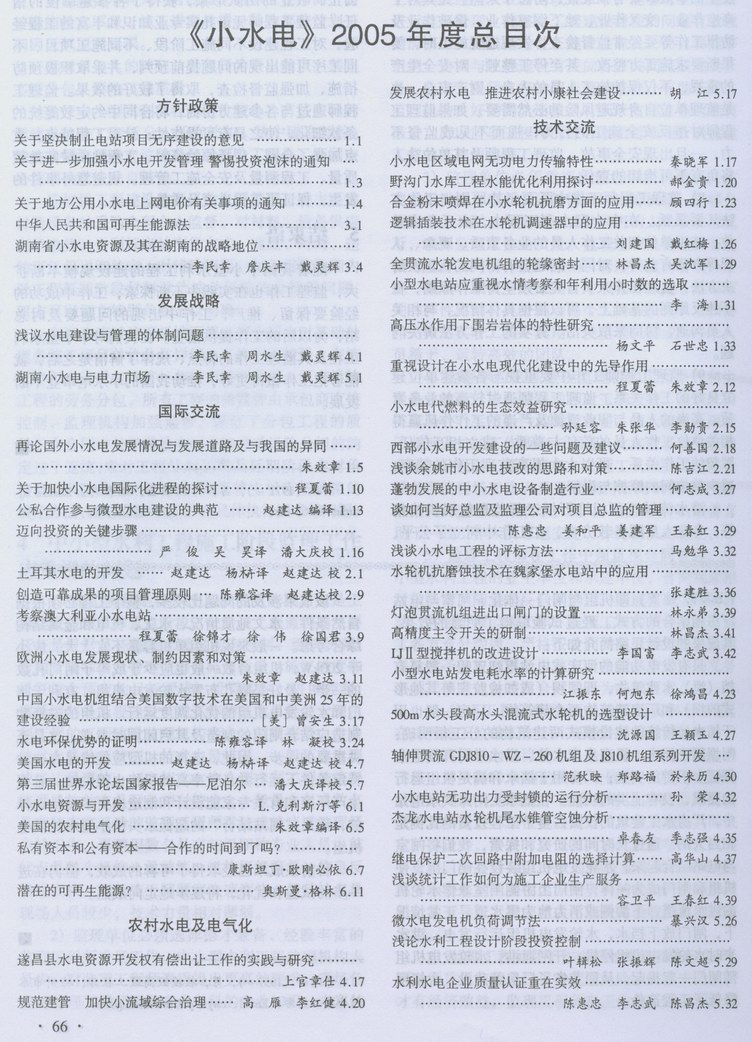 《小水电》2005年度总目次
方针政策
关于坚决制止电站项目无序建设的意见 …… 1.1
关于进一步加强小水电开发管理 警惕投资泡沫的通知
…… 1.3
关于地方公用小水电上网电价有关事项的通知 …… 1.4
中华人民共和国可再生能源法 …… 3.1
湖南省小水电资源及其在湖南的战略地位……
李民幸 詹庆丰 戴灵辉 3.4
发展战略
浅议水电建设与管理的体制问题……
李民幸 周水生 戴灵辉 4.1
湖南小水电与电力市场 …… 李民幸 周水生 戴灵辉 5.1
国际交流
再论国外小水电发展情况与发展道路及与我国的异同……
朱效章 1.5
关于加快小水电国际化进程的探讨…… 程夏蕾 1.10
公私合作参与微型水电建设的典范 …… 赵建达 编译 1.13
迈向投资的关键步骤……
严俊 吴昊译 潘大庆校 1.16
土耳其水电的开发 …… 赵建达 杨柳译 赵建达 校 2.1
创造可靠成果的项目管理原则 … 陈雍容译 赵建达校 2.9
考察澳大利亚小水电站……
程夏蕾 徐锦才 徐伟 徐国君 3.9
欧洲小水电发展现状、制约因素和对策……
朱效章 赵建达 3.11
中国小水电机组结合美国数字技术在美国和中美洲25年的
建设经验 ……［美］曾安生 3.17
水电环保优势的证明…… 陈雍容译 林凝校 3.24
美国水电的开发 …… 赵建达 杨柳译 赵建达 校 4.7
第三届世界水论坛国家报告——尼泊尔 … 潘大庆译校 5.7
小水电资源与开发 …… L.克利斯汀等 6.1
美国的农村电气化 …… 朱效章编译 6.5
私有资本和公有资本——合作的时间到了吗？
康斯坦丁·欧刚必依 6.7
潜在的可再生能源？ …… 奥斯曼·格林 6.11
农村水电及电气化
遂昌县水电资源开发权有偿出让工作的实践与研究 ……
上官章仕 4.17
规范建管 加快小流域综合治理…… 高雁 李红健 4.20
· 66 ·
发展农村水电 推进农村小康社会建设……… 胡江 5.17
技术交流
小水电区域电网无功电力传输特性…… 秦晓军 1.17
野沟门水库工程水能优化利用探讨…… 郝金贵 1.20
合金粉末喷焊在小水轮机抗磨方面的应用…… 顾四行 1.23
逻辑插装技术在水轮机调速器中的应用……
刘建国 戴红梅 1.26
全贯流水轮发电机组的轮缘密封…… 林昌杰 吴沈军 1.29
小型水电站应重视水情考察和年利用小时数的选取……
李海 1.31
高压水作用下围岩岩体的特性研究……
杨文平 石世忠 1.33
重视设计在小水电现代化建设中的先导作用……
程夏蕾 朱效章 2.12
小水电代燃料的生态效益研究……
孙廷容 朱张华 李勋贵 2.15
西部小水电开发建设的一些问题及建议……… 何善国 2.18
浅谈余姚市小水电技改的思路和对策…… 陈吉江 2.21
蓬勃发展的中小水电设备制造行业…… 何志成 3.27
谈如何当好总监及监理公司对项目总监的管理……
陈惠忠 姜和平 姜建军 王春红 3.29
浅谈小水电工程的评标方法…… 马勉华 3.32
水轮机抗磨蚀技术在魏家堡水电站中的应用……
张建胜 3.36
灯泡贯流机组进出口闸门的设置…… 林永弟 3.39
高精度主令开关的研制…… 林昌杰 3.41
IJⅡ型搅拌机的改进设计…… 李国富 李志武 3.42
小型水电站发电耗水率的计算研究……
江振东 何旭东 徐鸿昌 4.23
500m水头段高水头混流式水轮机的选型设计……
沈源国 王颖玉 4.27
轴伸贯流GDJ810－WZ－260机组及J810机组系列开发 …
范秋映 郑路福 於来历 4.30
小水电站无功出力受封锁的运行分析…… 孙荣 4.32
杰龙水电站水轮机尾水锥管空蚀分析……
卓春友 李志强 4.35
继电保护二次回路中附加电阻的选择计算…… 高华山 4.37
浅谈统计工作如何为施工企业生产服务……
容卫平 王春红 4.39
微水电发电机负荷调节法…… 綦兴汉 5.26
浅论水利工程设计阶段投资控制……
叶辑松 张振辉 陈文超 5.29
水利水电企业质量认证重在实效……
陈惠忠 李志武 陈昌杰 5.32